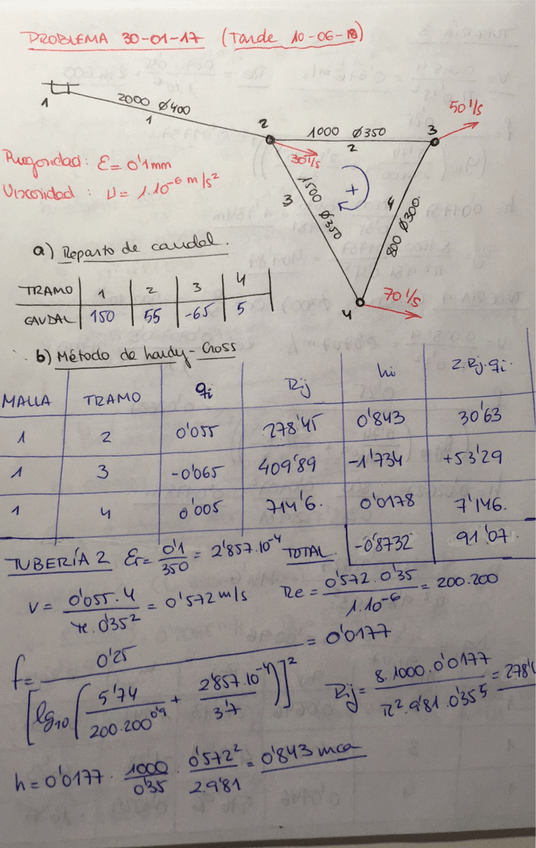 PROBLEMA 30-01-17 (Tarde 10-06-18)
1
2000 Ø400
1
2
1000 Ø350
2
3
50 l/s
30 l/s
Rugosidad: ε = 0'1mm
Viscosidad: υ = 1.10⁻⁶ m/s²
3
1500 Ø350
+
4
800 Ø300
a) Reparto de caudal.
4
70 l/s
TRAMO 1 2 3 4
CAUDAL 150 55 -65 5
b) Método de hardy-Cross
MALLA TRAMO qi Rij hi 2.Rij.qi
1 2 0'055 278'45 0'843 30'63
1 3 -0'065 409'89 -1'734 +53'29
1 4 0'005 714'6. 0'0178 7'146.
TOTAL -0'8732 91'07
TUBERÍA 2 Er = 0'1/350 = 2'857.10⁻⁴
V = 0'055.4/π.0'35² = 0'572 m/s Re = 0'572.0'35/1.10⁻⁶ = 200.200
f = 0'25/[lg₁₀(5'74/200.200⁰'⁹ + 2'857.10⁻⁴/3'7)]² = 0'0177
Rij = 8.1000.0'0177/π².9'81.0'35⁵ = 278'
h = 0'0177 . 1000/0'35 . 0'572²/2.9'81 = 0'843 mca